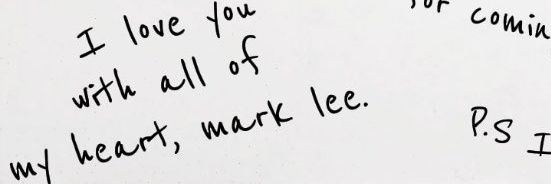 I love you
with all of
my heart, mark lee.
comin
P.S I